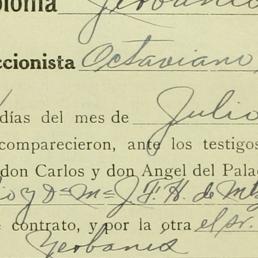 olonia Yerbanis
ccionista Octaviano
días del mes de Julio
comparecieron, ante los testigos
don Carlos y don Angel del Palac
io y Da. Ma. J. F. H. de
e contrato, y por la otra el sr.
Yerbanis